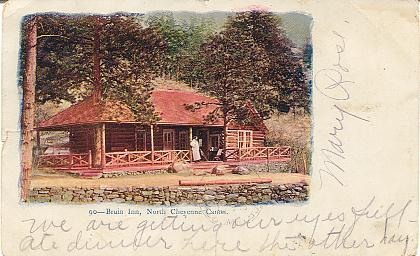 90—Bruin Inn, North Cheyenne Cañon.
Mary Rose.
We are getting our eyes full
ate dinner here this other day.